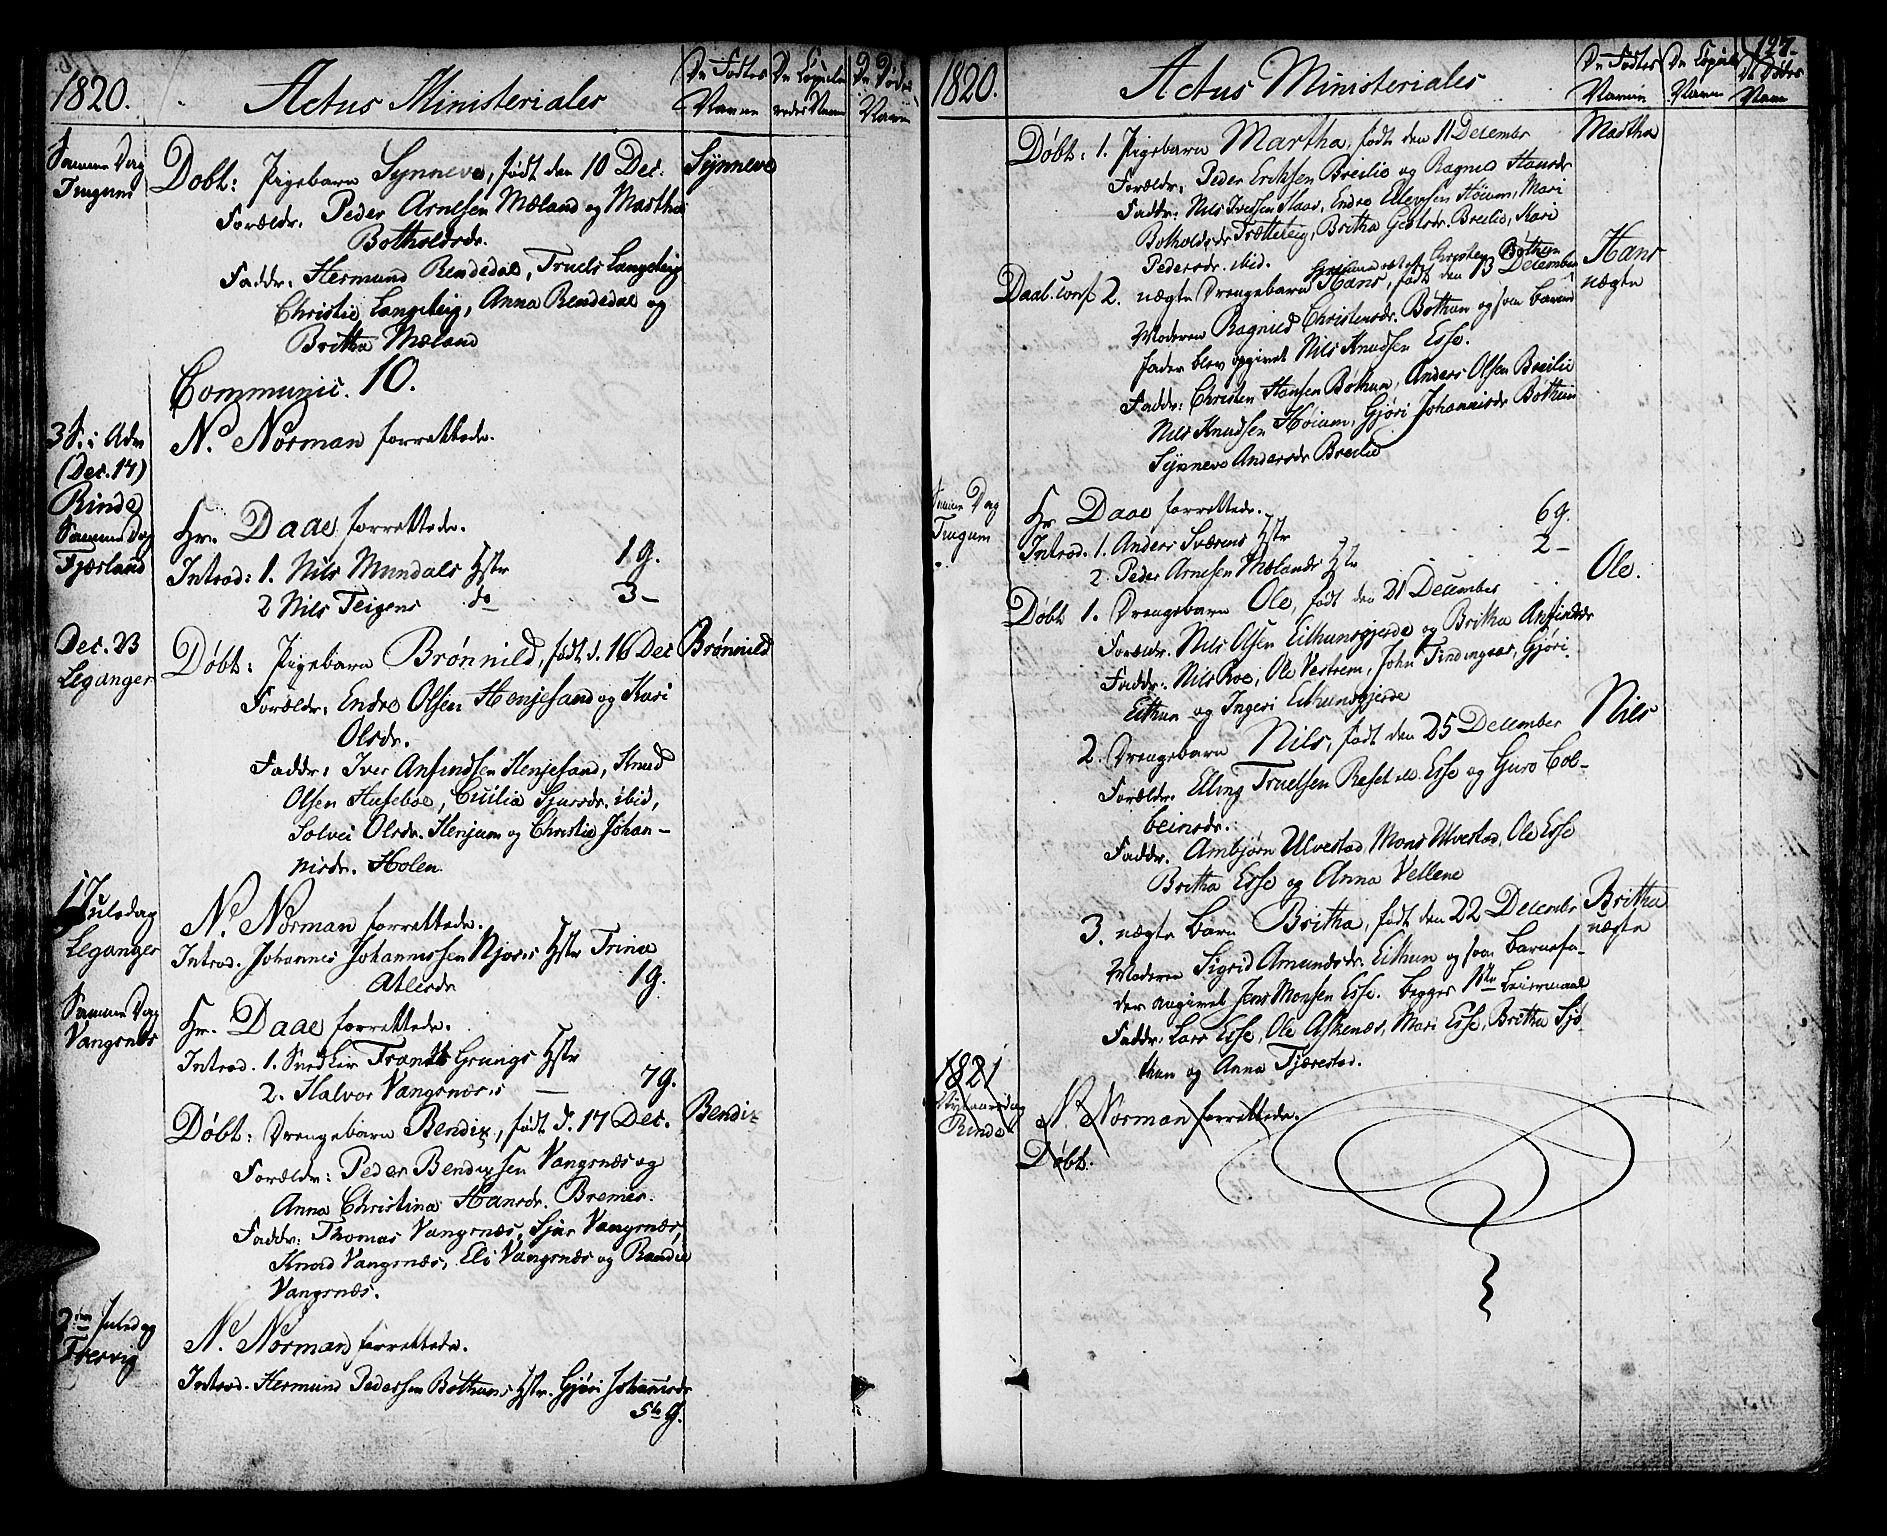 1820.
Actus Ministeriales
De Fødtes
Navne
De Copule-
redes Navne
De Dødes
Navne
Samme Dag
Tingum
Døbt: Pigebarn Synneve, født den 10 Dec.
Synneve
Forældr. Peder Arnesen Mæland og Martha
Botholdsdr.
Faddr. Hermund Rendedal, Truels Langeteig
Christie Langeteig, Anna Rendedal og
Britha Mæland
Communic. 10.
3 S. i Adv
(Dec. 17)
Rinde
N. Norman forrettede.
Samme Dag
Fjærland
Hr. Daae forrettede.
Introd: 1. Nils Mundals Hstr 1 g.
2 Nils Teigens do 3 –
Dec. 23
Leganger
Døbt: Pigebarn Brønnild, født d. 16 Dec
Brønnild
Forældr. Endre Olsen Henjesand og Kari
Olsdr.
Faddr: Iver Anfindsen Henjesand, Knud
Olsen Huseboe, Cicilia Sjursdr. ibid,
Solvei Olsdr. Henjum og Christie Johan-
nisdr. Holen.
1 Juledag
Leganger
N. Norman forrettede.
Introd. Johannes Johannessen Njøs's Hstr Trine
Atlesdr 1 g.
Samme Dag
Vangsnes
Hr. Daae forrettede.
Introd. 1. Snedker Frants Grungs Hstr
2. Halvor Vangsnæs's — 7 g.
Døbt: Drengebarn Bendix, født d. 17 Dec.
Bendix
Forældr: Peder Bendixsen Vangsnæs og
Anna Christina Hansdr. Bremer.
Faddr: Thomas Vangsnæs, Sjur Vangsnæs,
Knud Vangsnæs, Eli Vangsnæs og Randie
Vangsnæs.
2den Juledag
Fresvig
N. Norman forrettede.
Introd. Hermund Pedersen Bothuns Hstr. Gjøri Johannisdr
5te G.
1820.
Actus Ministeriales
127.
De Fødtes
Navne
De Copule
Navne
De Dødes
Navne
Døbt: 1. Pigebarn Martha, født den 11 December
Martha
Forældr: Peder Erichsen Breilie og Ragnild Hansdr
Faddr: Nils Iversen Haar, Endre Ellensen Høium, Mari
Botholdsdr Trætteteig, Britha Gestsdr. Breilie, Kari
Pedersdr. ibid.
Christen Bothun
Daab. conf 2. uægte Drengebarn Hans, født den 13 December
Hans
uægte
Moderen Ragnild Christensdr. Bothun og som Barne
fader blev opgivet Nils Knudsen Esse.
Faddr: Christen Hansen Bothun, Anders Olsen Breilie
Nils Knudsen Høium, Gjøri Johannisdr Bothun
Synneve Andersdr Breilie
Samme Dag
Tingum
Hr Daae forrettede. 6 g.
Introd. 1. Anders Sværens Hstr 2 –
2. Peder Arnesen Mælands Hstr
Døbt 1. Drengebarn Ole, født den 21 December
Ole.
Forældr. Nils Olsen Eithunsgjerde og Britha Anfindsdr
Faddr: Nils Roe, Ole Vestrem, John Tindingaas, Gjøri
Eithun og Ingeri Eithunsgjerde
2. Drengebarn Nils, født den 25 December
Nils
Forældr. Elling Truelsen Reset al. Esse og Guro Col-
beinsdr.
Faddr. Ambjørn Ulvestad, Mons Ulvestad, Ole Esse
Britha Esse og Anna Vellene
3. uægte Barn Britha, født den 22 December
Britha
uægte
Moderen Sigrid Amundsdr. Eithun og som Barnefa-
der angivet Jens Monsen Esse. begges 1ste Leiermaal
Faddr: Lars Esse, Ole Askenæs, Mari Esse, Britha Sjø-
thun og Anna Fjærestad.
1821
Nytaarsdag
Rinde
N. Norman forrettede.
Døbt.